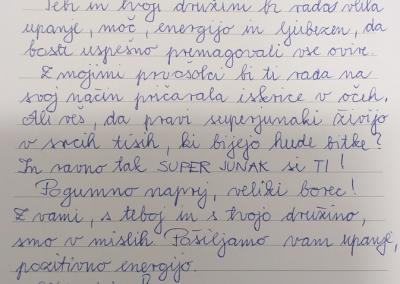 Tebi in tvoji družini bi rada vlila
upanje, moč, energijo in ljubezen, da
boste uspešno premagovali vse ovire.
Z mojimi prvošolci bi ti rada na
svoj način pričarala iskrice v očeh.
Ali veš, da pravi superjunaki živijo
v srcih tistih, ki bijejo hude bitke?
In ravno tak SUPER JUNAK si TI!
Pogumno naprej, veliki borec!
Z vami, s teboj in s tvojo družino,
smo v mislih. Pošiljamo vam upanje,
pozitivno energijo.